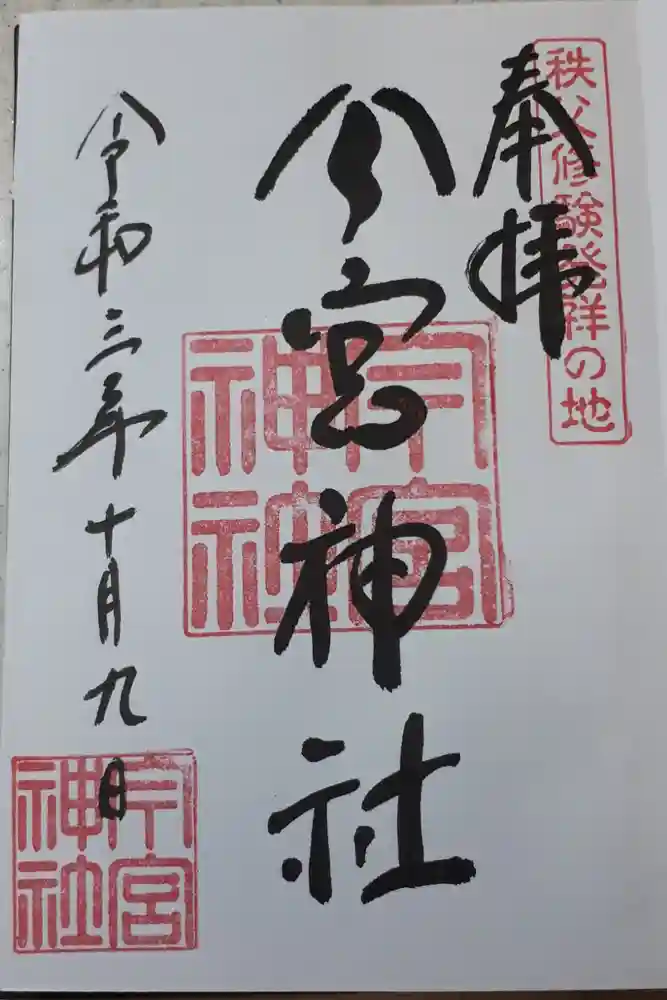 秩父修験発祥の地
奉拝
今宮神社
今宮
神社
令和三年十月九日
今宮
神社